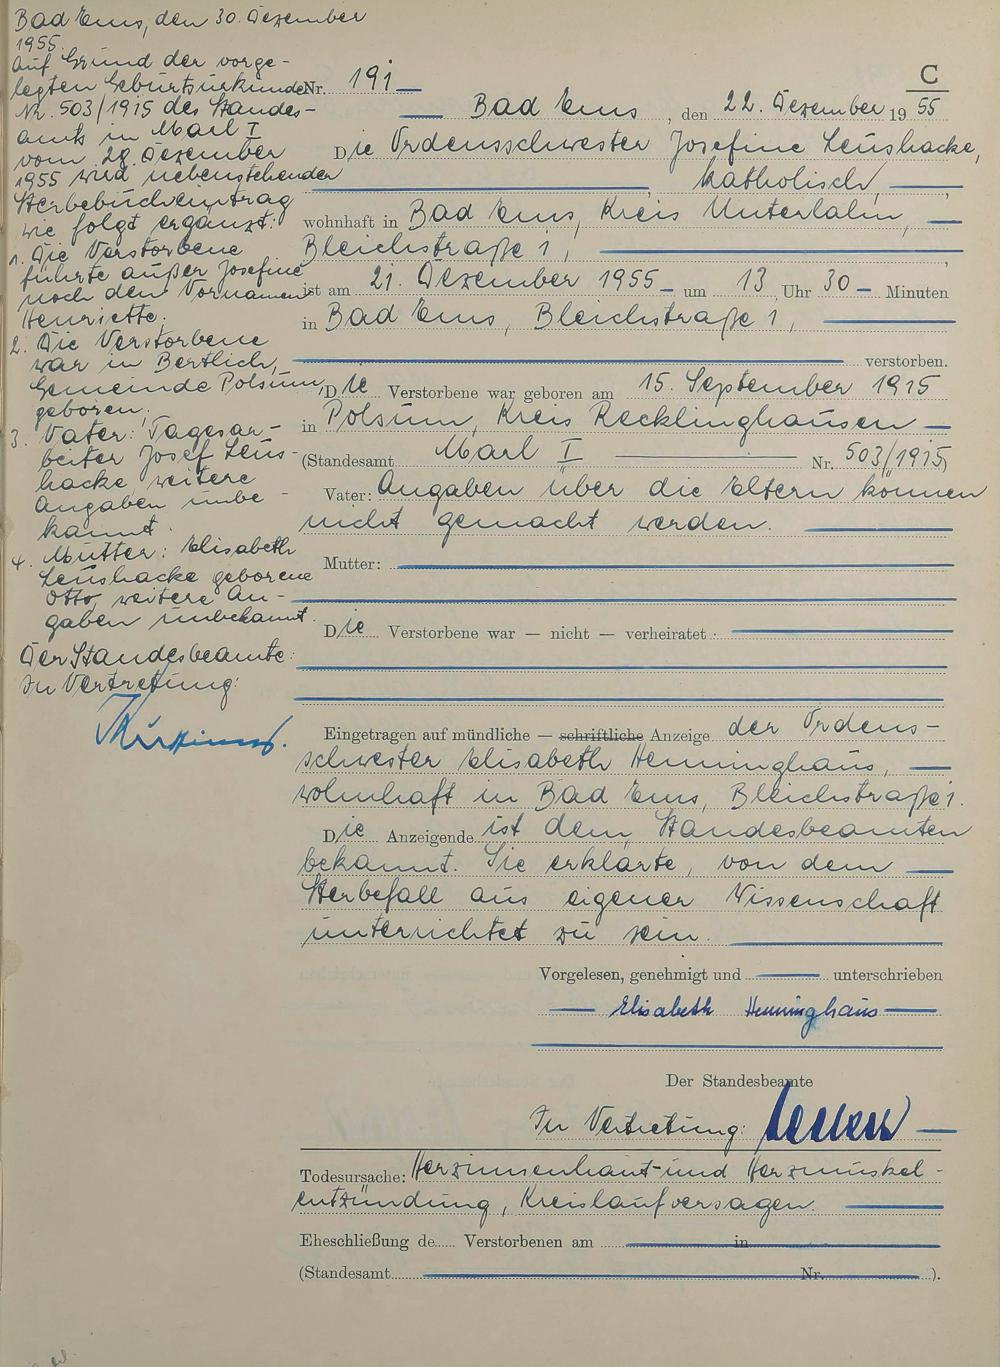 Bad Ems, den 30. Dezember
1955.
Auf Grund der vorge-
legten Geburtsurkunde
Nr. 503/1915 des Standes-
amts in Marl I
vom 28. Dezember
1955 wird nebenstehender
Sterbebucheintrag
wie folgt ergänzt:
1. Die Verstorbene
führte außer Josefine
noch den Vornamen
Henriette.
2. Die Verstorbene
war in Bertlich,
Gemeinde Polsum,
geboren.
3. Vater: Tagesar-
beiter Josef Leus-
hacke weitere
Angaben unbe-
kannt.
4. Mutter: Elisabeth
Leushacke geborene
Otto, weitere An-
gaben unbekannt.
Der Standesbeamte:
In Vertretung:
C
Nr. 191
Bad Ems, den 22. Dezember 1955
Die Ordensschwester Josefine Leushacke,
, katholisch,
wohnhaft in Bad Ems, Kreis Unterlahn,
Bleichstraße 1,
ist am 21. Dezember 1955 um 13 Uhr 30 Minuten
in Bad Ems, Bleichstraße 1,
verstorben.
Die Verstorbene war geboren am 15. September 1915
in Polsum, Kreis Recklinghausen
(Standesamt Marl I Nr. 503/1915)
Vater: Angaben über die Eltern können
nicht gemacht werden.
Mutter:
Die Verstorbene war — nicht — verheiratet
Eingetragen auf mündliche — schriftliche Anzeige der Ordens-
schwester Elisabeth Henninghaus,
wohnhaft in Bad Ems, Bleichstraße 1.
Die Anzeigende ist dem Standesbeamten
bekannt. Sie erklärte, von dem
Sterbefall aus eigener Wissenschaft
unterrichtet zu sein.
Vorgelesen, genehmigt und unterschrieben
Elisabeth Henninghaus
Der Standesbeamte
In Vertretung:
Todesursache: Herzinnenhaut- und Herzmuskel-
entzündung, Kreislaufversagen.
Eheschließung de..... Verstorbenen am in
(Standesamt Nr. ).